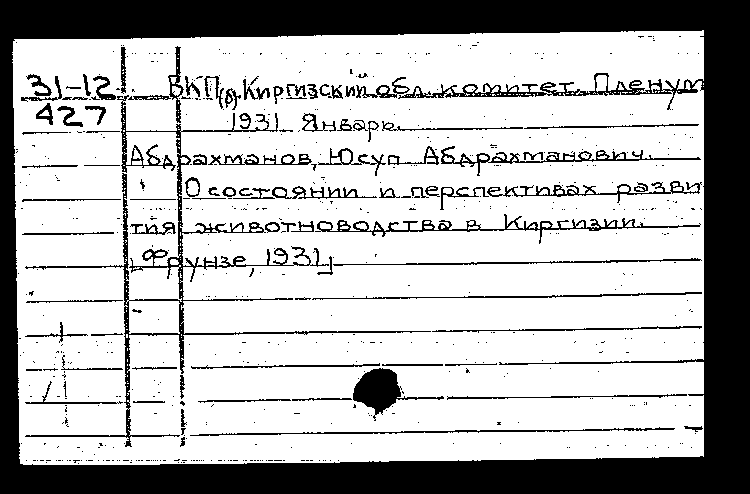 31-12 ВКП(б). Киргизский обл. комитет. Пленум
427 1931 Январь.
Абдрахманов, Юсуп Абдрахманович.
О состоянии и перспективах разви
тия животноводства в Киргизии.
[Фрунзе, 1931]